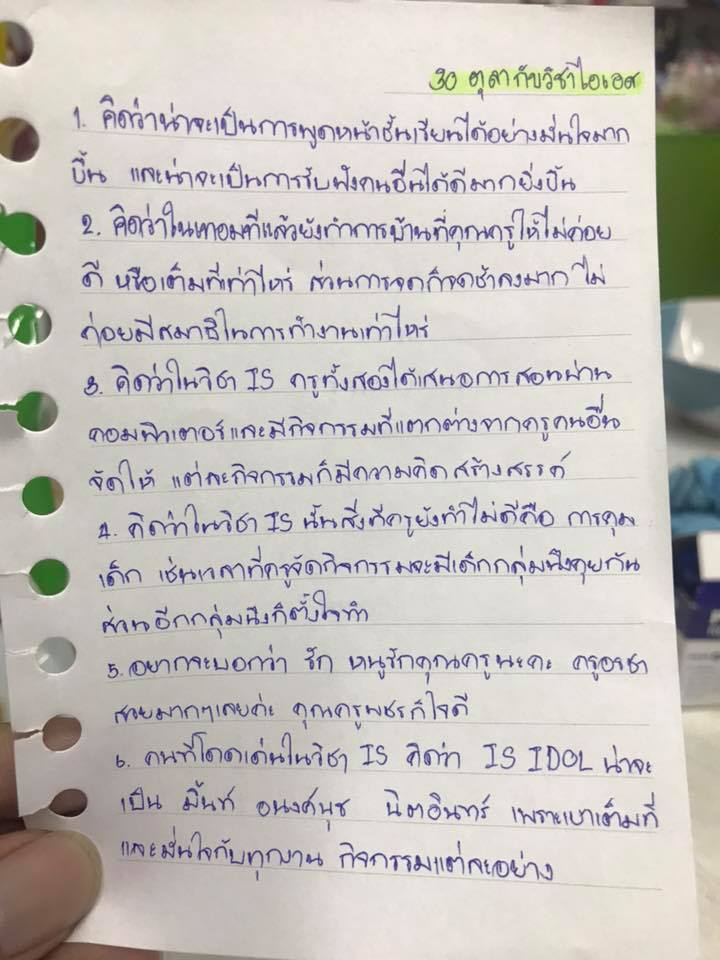 30 ตุลา กับวิชาไอเอส
1. คิดว่าน่าจะเป็นการพูดหน้าชั้นเรียนได้อย่างมั่นใจมาก
ขึ้น และน่าจะเป็นการรับฟังคนอื่นได้ดีมากยิ่งขึ้น
2. คิดว่าในเทอมที่แล้วยังทำการบ้านที่คุณครูให้ไม่ค่อย
ดี หรือเต็มที่เท่าไหร่ ส่วนการจดก็จดช้าลงมาก ไม่
ค่อยมีสมาธิในการทำงานเท่าไหร่
3. คิดว่าในวิชา IS ครูทั้งสองได้เสนอการสอนผ่าน
คอมพิวเตอร์และมีกิจกรรมที่แตกต่างจากครูคนอื่น
จัดให้ แต่ละกิจกรรมก็มีความคิดสร้างสรรค์
4. คิดว่าในวิชา IS นั้นสิ่งที่ครูยังทำไม่ดีคือ การคุม
เด็ก เช่นเวลาที่ครูจัดกิจกรรมจะมีเด็กกลุ่มนึงคุยกัน
ส่วนอีกกลุ่มนึงก็ตั้งใจทำ
5. อยากจะบอกว่า รัก หนูรักคุณครูนะคะ ครูอรชา
สวยมากๆเลยค่ะ คุณครูพชรก็ใจดี
6. คนที่โดดเด่นในวิชา IS คิดว่า IS IDOL น่าจะ
เป็น มิ้นท์ อนงค์นุช นิตอินทร์ เพราะเขาเต็มที่
และมั่นใจกับทุกงาน กิจกรรมแต่ละอย่าง